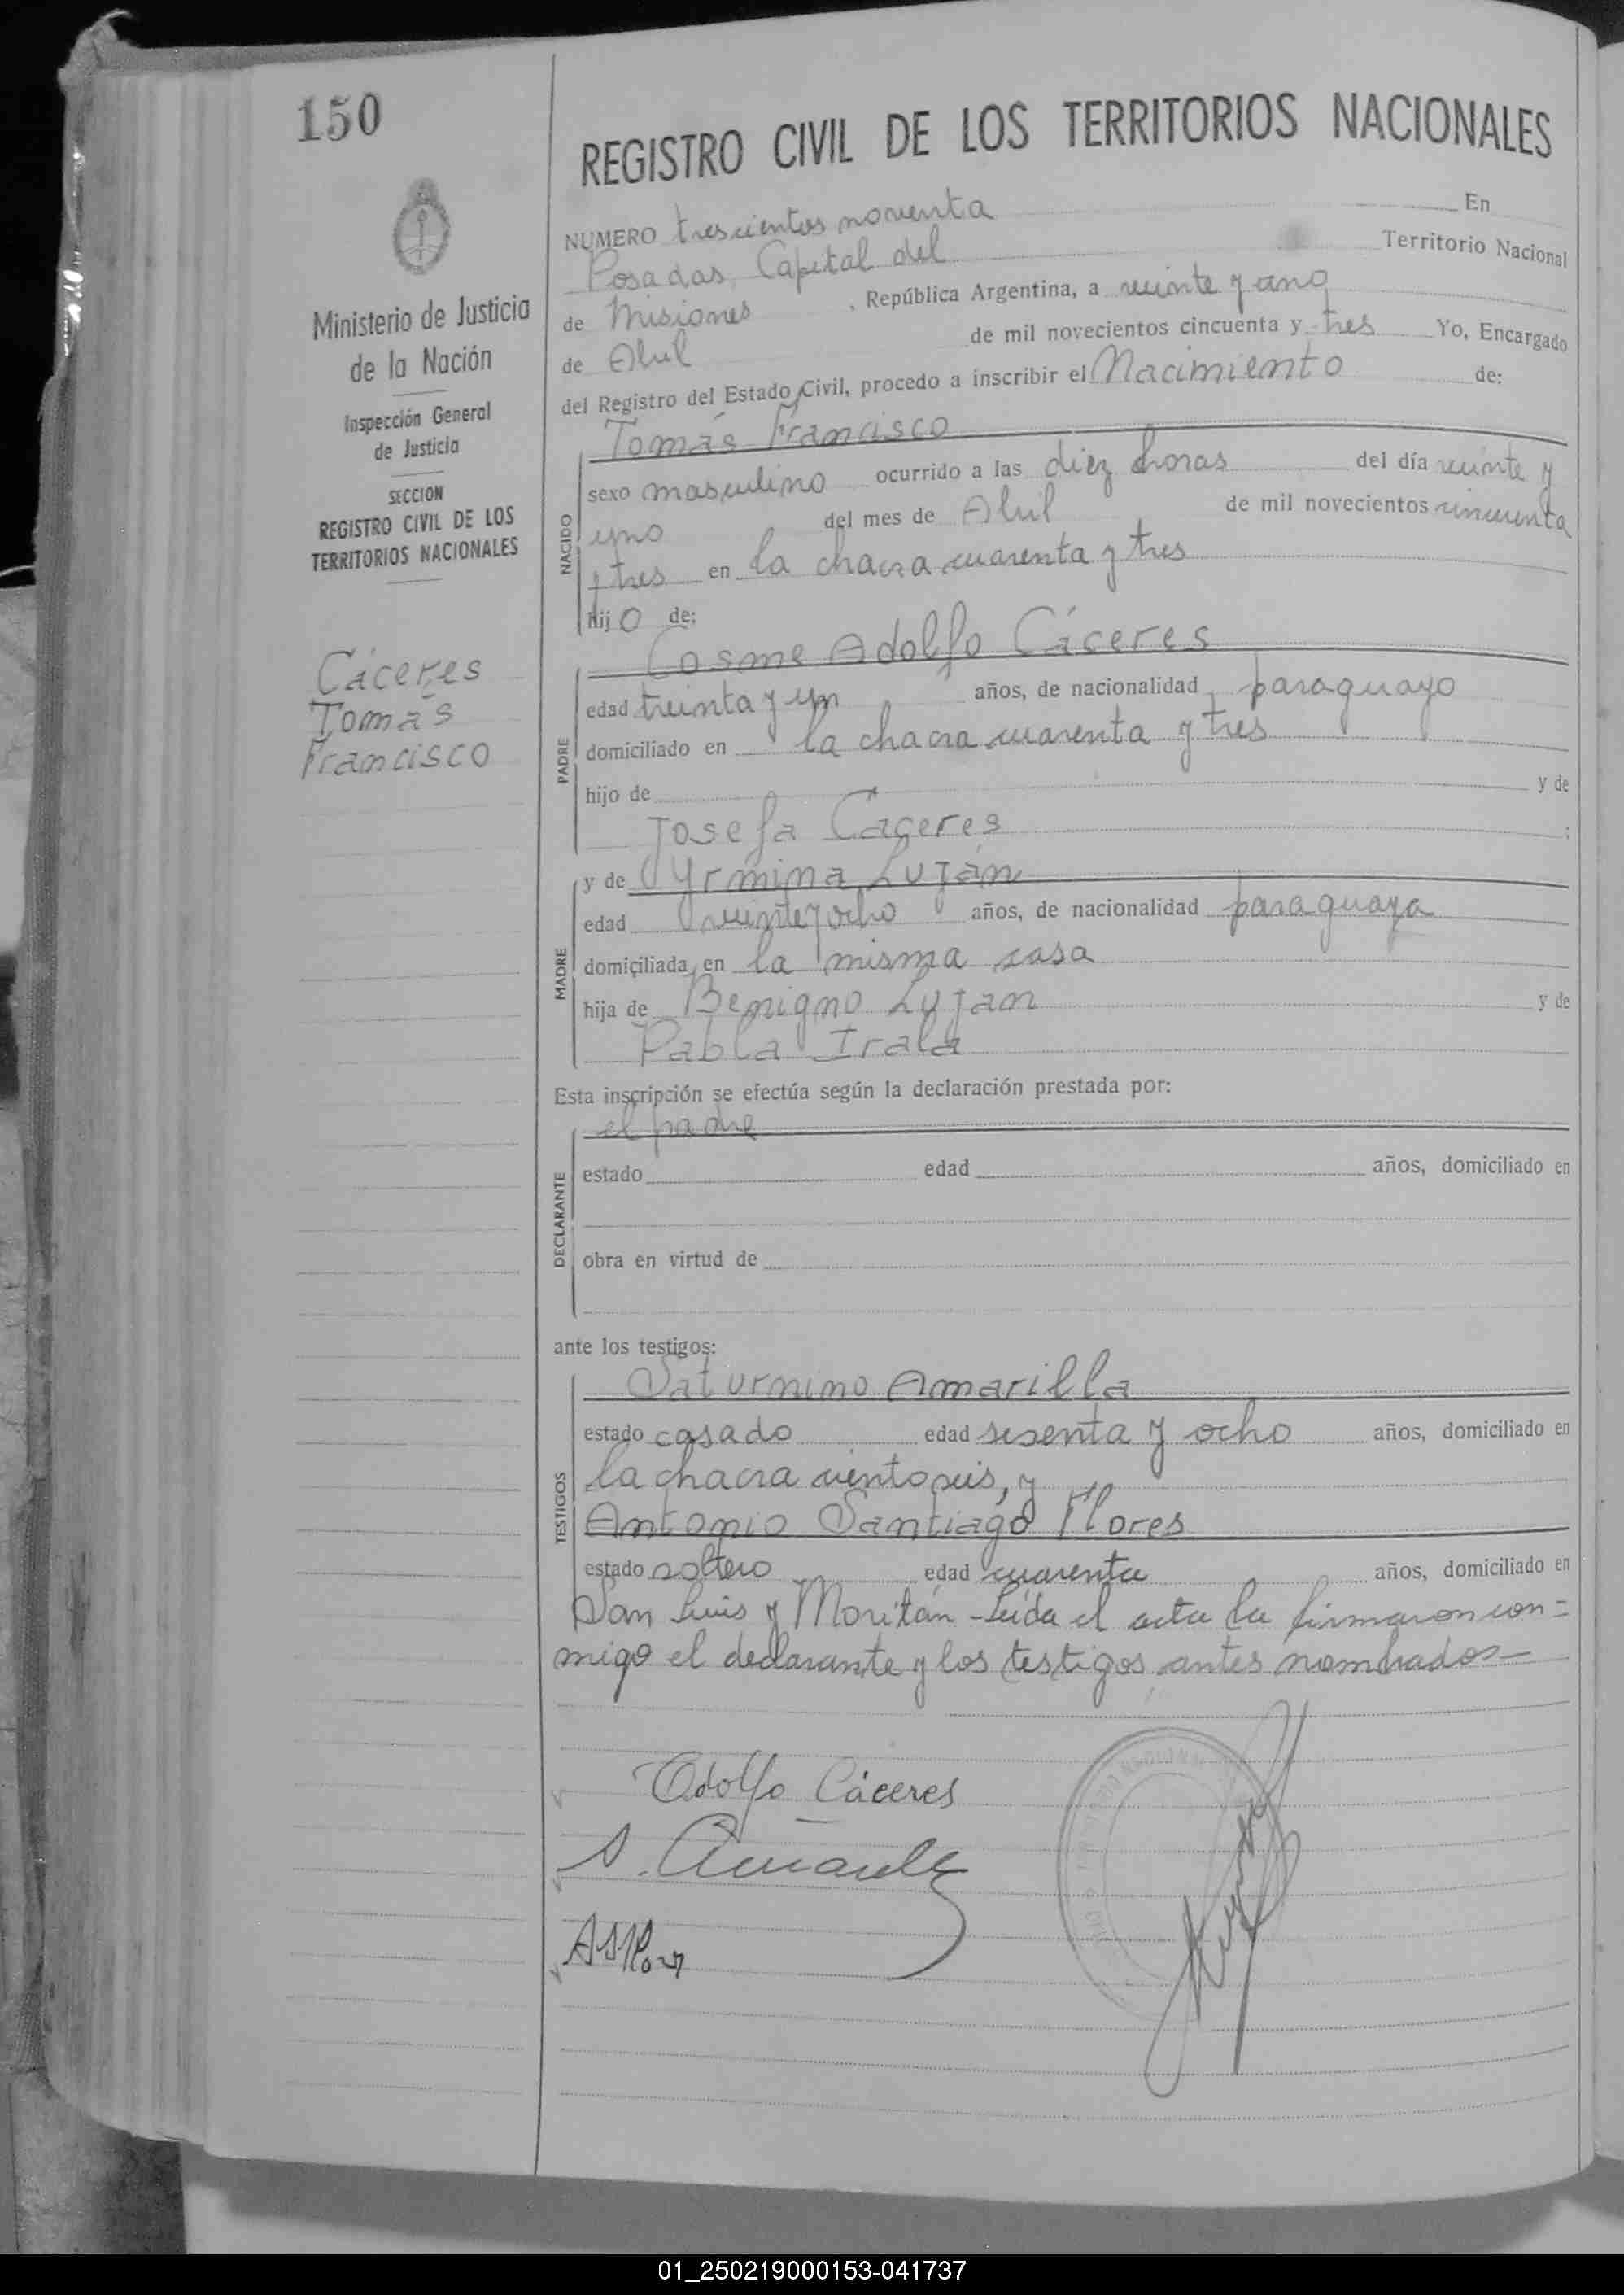 150
Ministerio de Justicia
de la Nación
Inspección General
de Justicia
SECCION
REGISTRO CIVIL DE LOS
TERRITORIOS NACIONALES
Cáceres
Tomás
Francisco
REGISTRO CIVIL DE LOS TERRITORIOS NACIONALES
NUMERO trescientos noventa En
Posadas, Capital del Territorio Nacional
de Misiones , República Argentina, a veinte y uno
de Abril de mil novecientos cincuenta y tres Yo, Encargado
del Registro del Estado Civil, procedo a inscribir el Nacimiento de:
Tomás Francisco
NACIDO
sexo masculino ocurrido a las diez horas del día veinte y
uno del mes de Abril de mil novecientos cincuenta
y tres en la chacra cuarenta y tres
hijo de:
Cosme Adolfo Cáceres
PADRE
edad treinta y un años, de nacionalidad paraguayo
domiciliado en la chacra cuarenta y tres
hijo de y de
Josefa Caceres ;
MADRE
y de Yrmina Luján
edad veinte y ocho años, de nacionalidad paraguaya
domiciliada en la misma casa
hija de Benigno Lujan y de
Pabla Irala
Esta inscripción se efectúa según la declaración prestada por:
el padre
DECLARANTE
estado edad años, domiciliado en
obra en virtud de
ante los testigos:
Saturnino Amarilla
TESTIGOS
estado casado edad sesenta y ocho años, domiciliado en
la chacra ciento seis, y
Antonio Santiago Flores
estado soltero edad cuarenta años, domiciliado en
San Luis y Moritán - Leída el acta la firmaron con=
migo el declarante y los testigos antes nombrados—
Adolfo Cáceres
S. Amarilla
01_250219000153-041737